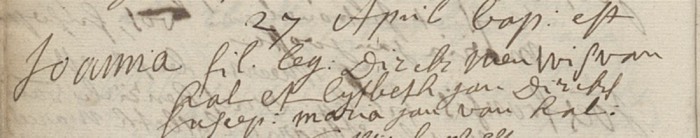 27 April bap: est
Joanna fil. leg: Dirck van
Kal et Lysbeth jan Dirckx
suscep: maria jan van Kal: